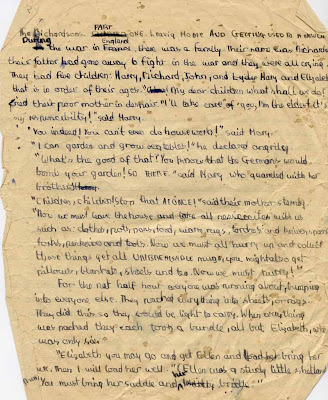 PART
The Richardsons ONE. Leavig HOME AND GETTING USED to A
England
During the war in France, there was a family. Their name was Richards
their father had gone away to fight in the war and they were all crying
They had five children: Harry, Richard, John, and Lydy Mary and Elizabeth
that is in order of their ages. "My dear children what shall we do?"
cried their poor mother in despair. "I'll take care of you, I'm the eldest it's
my responsibility!" said Harry.
"You indeed! You can't even do housework!" said Mary.
"I can garden and grow vegtables!" he declared angrily
"What's the good of that? You know that the Germans would
bomb your garden! SO THERE." said Mary who quarreled with her
brother
"Children, children! Stop that AT ONCE!" said their mother sternly.
"Now we must leave the house and take all nessecaries with us
such as: clothes, pots, pans, food, warm rugs, torches and knives, spoons
forks, and boots. Now we must all hurry up and collect
those things get all UNIMPENSABLE mum, you might also get
pillows, blankets, sheets and Now we must hurry!"
For the net half hour everyone was running about, bumping
into everyone else. They packed everything into sheets, or rugs
They did this so they would be light to carry. When everything
was packed they each took a bundle, all but Elizabeth, who
was only five.
"Elizabeth you may go and get Ellen and bring her
here, then I will load her well." (Ellen was a sturdy little shetland
You must bring her saddle and her bridle."